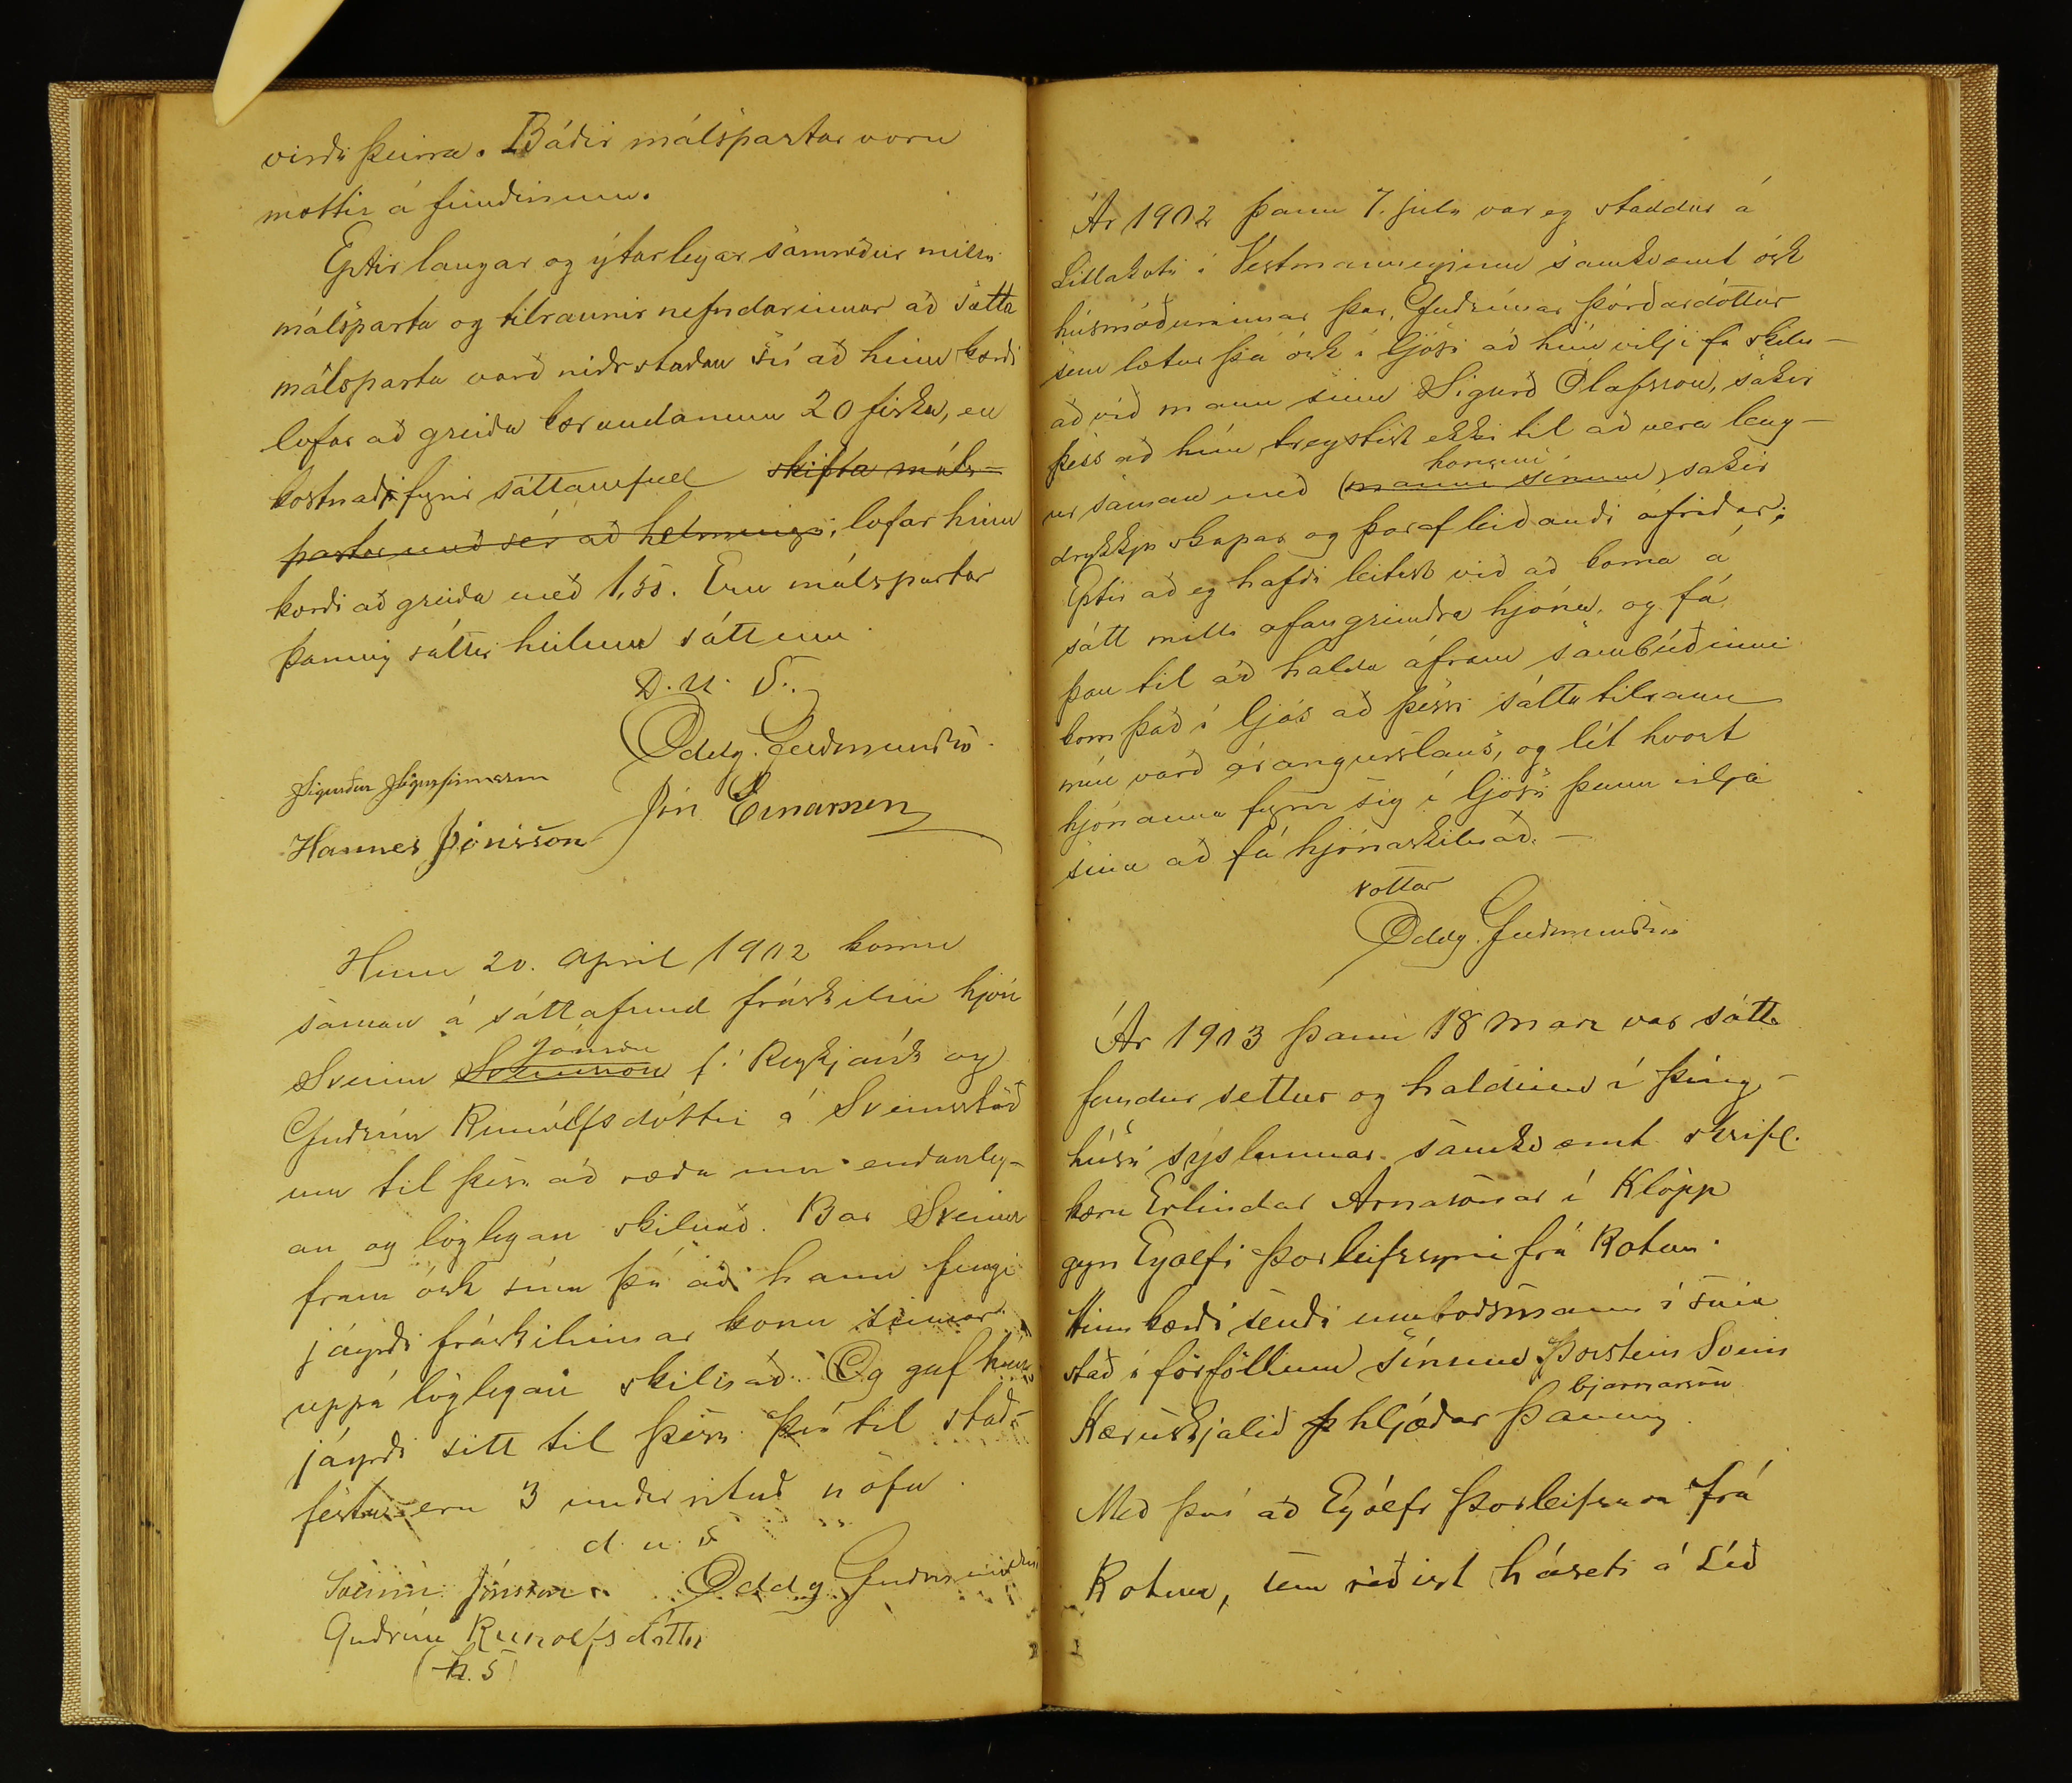 virði þeirra. Báðir málspartar voru
mættir á fundinum.
Eptir langar og ýtarlegar samræður milli
málsparta og tilraunir nefndarinnar að sætta
málsparta varð niðrstaðan sú að hinn kærði
lofar að greiða kærandanum 20 fiska, en
kostnað fyrir sáttamál skifta máls-
partar með sér að helmingi, lofar hinn
kærði að greiða með 1,55. Eru málspartar
þannig sáttir heilum sáttum
D. u. S.
Oddg. Guðmundss.
Sigurður Sigurfinnsson
Jón Einarsson
Hannes Jónsson
Hinn 20. Apríl 1902 komu
saman á sáttafund fráskilin hjón
Jónsson
Sveinn Sveinsson f. Reykjavík og
Guðrún Runólfsdóttir á Sveinsstöð
um til þess að ræða um endanleg-
an og löglegan skilnað. Bar Sveinn
fram ósk sína þá að hann fengi
jáyrði fráskilinnar konu sinnar
uppá löglegan skilnað. Og gaf hún
jáyrði sitt til þess. Því til stað-
festu eru 3 undirrituð nöfn.
d. u. s
Sveinn Jónsson. Oddg Guðmundss
Guðrún Runolfsdóttir
(h. s)
Ár 1902 þann 7. júlí var eg staddur á
Litlakoti í Vestmannaeyjum samkvæmt ósk
húsmóðurinnar þar, Guðrúnar Þórðardóttur
sem lætur þá ósk í ljósi að hún vilji fá skiln-
að við mann sinn Sigurð Ólafsson, sakir
þess að hún treystist ekki til að vera leng-
honum
ur saman með (manni sínum), sakir
drykkjuskapar og þaraf leiðandi ófriðar;
Eptir að eg hafði leitast við að koma á
sátt milli ofangreindra hjóna, og fá
þau til að halda áfram sambúðinni
kom það í ljós að þessi sáttatilraun
mín varð árangurslaus, og lét hvort
hjónanna fyrir sig í ljósi þann vilja
sinn að fá hjónaskilnað. -
vottar
Oddg. Guðmundss
Ár 1903 þann 18 marz var sátta
fundur settur og haldinn í þing-
húsi sýslunnar samkvæmt skrifl.
kæru Erlindar Arnasonar í Klöpp
gegn Eyolfi Þorleifssyni frá Kotum.
Hinn kærði sendi umboðsmann í sinn
stað í forföllum sínum Þorstein Svein
bjarnarson
Kæruskjalið þ hljóðar þannig
Með því að Eyólfr Þorleifsson frá
Kotum, sem réðist háseti á Líð